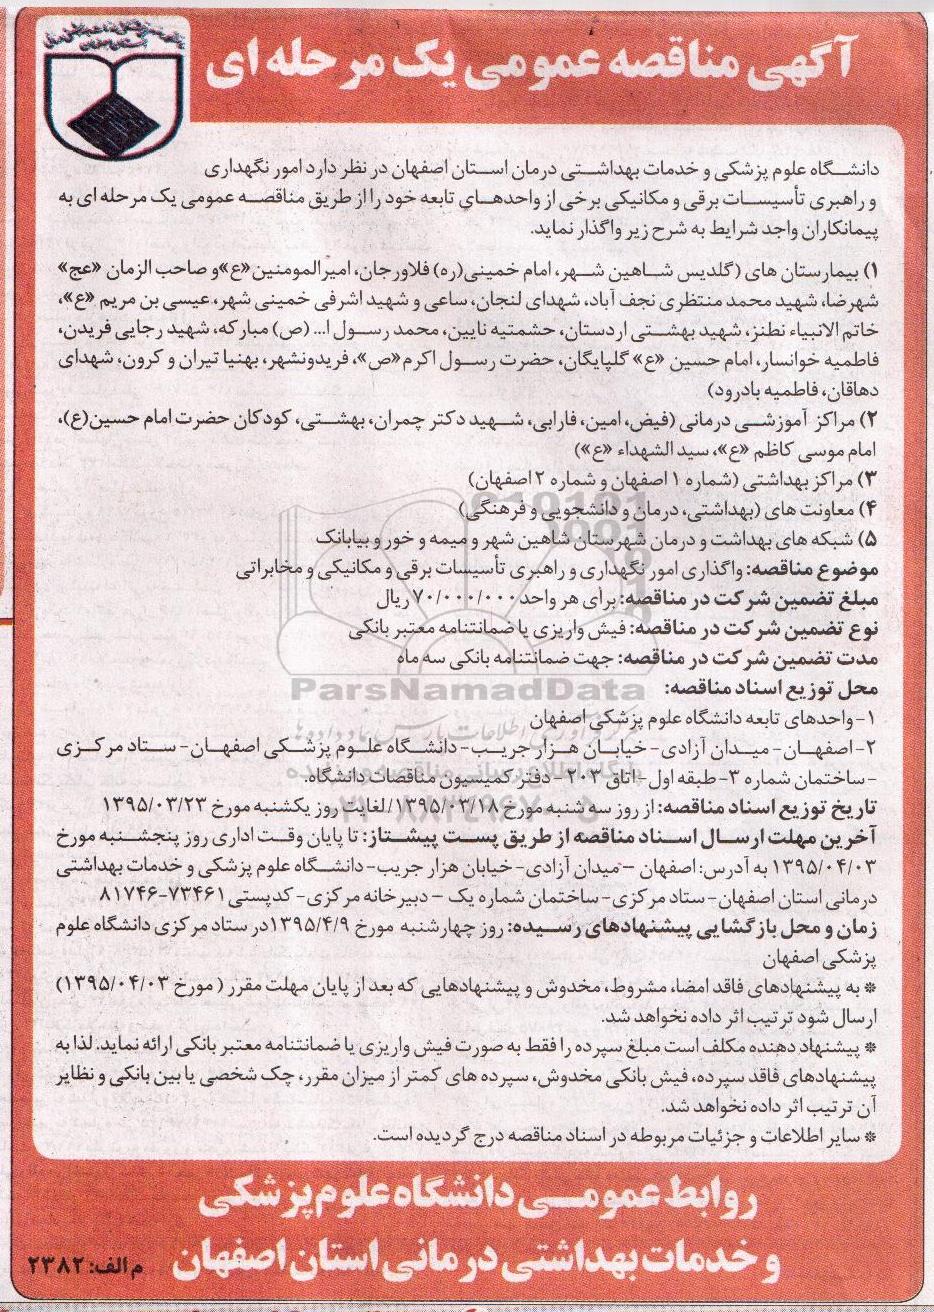 آگهی مناقصه عمومی یک مرحله ای
دانشگاه علوم پزشکی و خدمات بهداشتی درمان استان اصفهان در نظر دارد امور نگهداری
و راهبری تأسیسات برقی و مکانیکی برخی از واحدهای تابعه خود را از طریق مناقصه عمومی یک مرحله ای به
پیمانکاران واجد شرایط به شرح زیر واگذار نماید.
۱) بیمارستان های (گلدیس شاهین شهر، امام خمینی(ره) فلاورجان، امیرالمومنین«ع»و صاحب الزمان «عج»
شهرضا، شهید محمد منتظری نجف آباد، شهدای لنجان، ساعی و شهید اشرفی خمینی شهر، عیسی بن مریم «ع»،
خاتم الانبیاء نطنز، شهید بهشتی اردستان، حشمتیه نایین، محمد رسول ا... (ص) مبارکه، شهید رجایی فریدن،
فاطمیه خوانسار، امام حسین «ع» گلپایگان، حضرت رسول اکرم«ص»، فریدونشهر، بهنیا تیران و کرون، شهدای
دهاقان، فاطمیه بادرود)
۲) مراکز آموزشی درمانی (فیض، امین، فارابی، شهید دکتر چمران، بهشتی، کودکان حضرت امام حسین(ع)،
امام موسی کاظم «ع»، سید الشهداء «ع»)
۳) مراکز بهداشتی (شماره ۱ اصفهان و شماره ۲ اصفهان)
۴) معاونت های (بهداشتی، درمان و دانشجویی و فرهنگی)
۵) شبکه های بهداشت و درمان شهرستان شاهین شهر و میمه و خور و بیابانک
موضوع مناقصه: واگذاری امور نگهداری و راهبری تأسیسات برقی و مکانیکی و مخابراتی
مبلغ تضمین شرکت در مناقصه: برای هر واحد ۷۰/۰۰۰/۰۰۰ ریال
نوع تضمین شرکت در مناقصه: فیش واریزی یا ضمانتنامه معتبر بانکی
مدت تضمین شرکت در مناقصه: جهت ضمانتنامه بانکی سه ماه
ParsNamadData
محل توزیع اسناد مناقصه:
۱- واحدهای تابعه دانشگاه علوم پزشکی اصفهان
۲- اصفهان- میدان آزادی- خیابان هزار جریب- دانشگاه علوم پزشکی اصفهان- ستاد مرکزی
- ساختمان شماره ۳- طبقه اول- اتاق ۲۰۳- دفتر کمیسیون مناقصات دانشگاه.
تاریخ توزیع اسناد مناقصه: از روز سه شنبه مورخ ۱۳۹۵/۰۳/۱۸/ لغایت روز یکشنبه مورخ ۱۳۹۵/۰۳/۲۳
آخرین مهلت ارسال اسناد مناقصه از طریق پست پیشتاز: تا پایان وقت اداری روز پنجشنبه مورخ
۱۳۹۵/۰۴/۰۳ به آدرس: اصفهان - میدان آزادی- خیابان هزار جریب- دانشگاه علوم پزشکی و خدمات بهداشتی
درمانی استان اصفهان- ستاد مرکزی- ساختمان شماره یک - دبیرخانه مرکزی- کدپستی ۷۳۴۶۱-۸۱۷۴۶
زمان و محل بازگشایی پیشنهادهای رسیده: روز چهارشنبه مورخ ۱۳۹۵/۴/۹در ستاد مرکزی دانشگاه علوم
پزشکی اصفهان
* به پیشنهادهای فاقد امضا، مشروط، مخدوش و پیشنهادهایی که بعد از پایان مهلت مقرر ( مورخ ۱۳۹۵/۰۴/۰۳)
ارسال شود ترتیب اثر داده نخواهد شد.
* پیشنهاد دهنده مکلف است مبلغ سپرده را فقط به صورت فیش واریزی یا ضمانتنامه معتبر بانکی ارائه نماید. لذا به
پیشنهادهای فاقد سپرده، فیش بانکی مخدوش، سپرده های کمتر از میزان مقرر، چک شخصی یا بین بانکی و نظایر
آن ترتیب اثر داده نخواهد شد.
* سایر اطلاعات و جزئیات مربوطه در اسناد مناقصه درج گردیده است.
روابط عمومی دانشگاه علوم پزشکی
و خدمات بهداشتی درمانی استان اصفهان
م الف: ۲۳۸۲